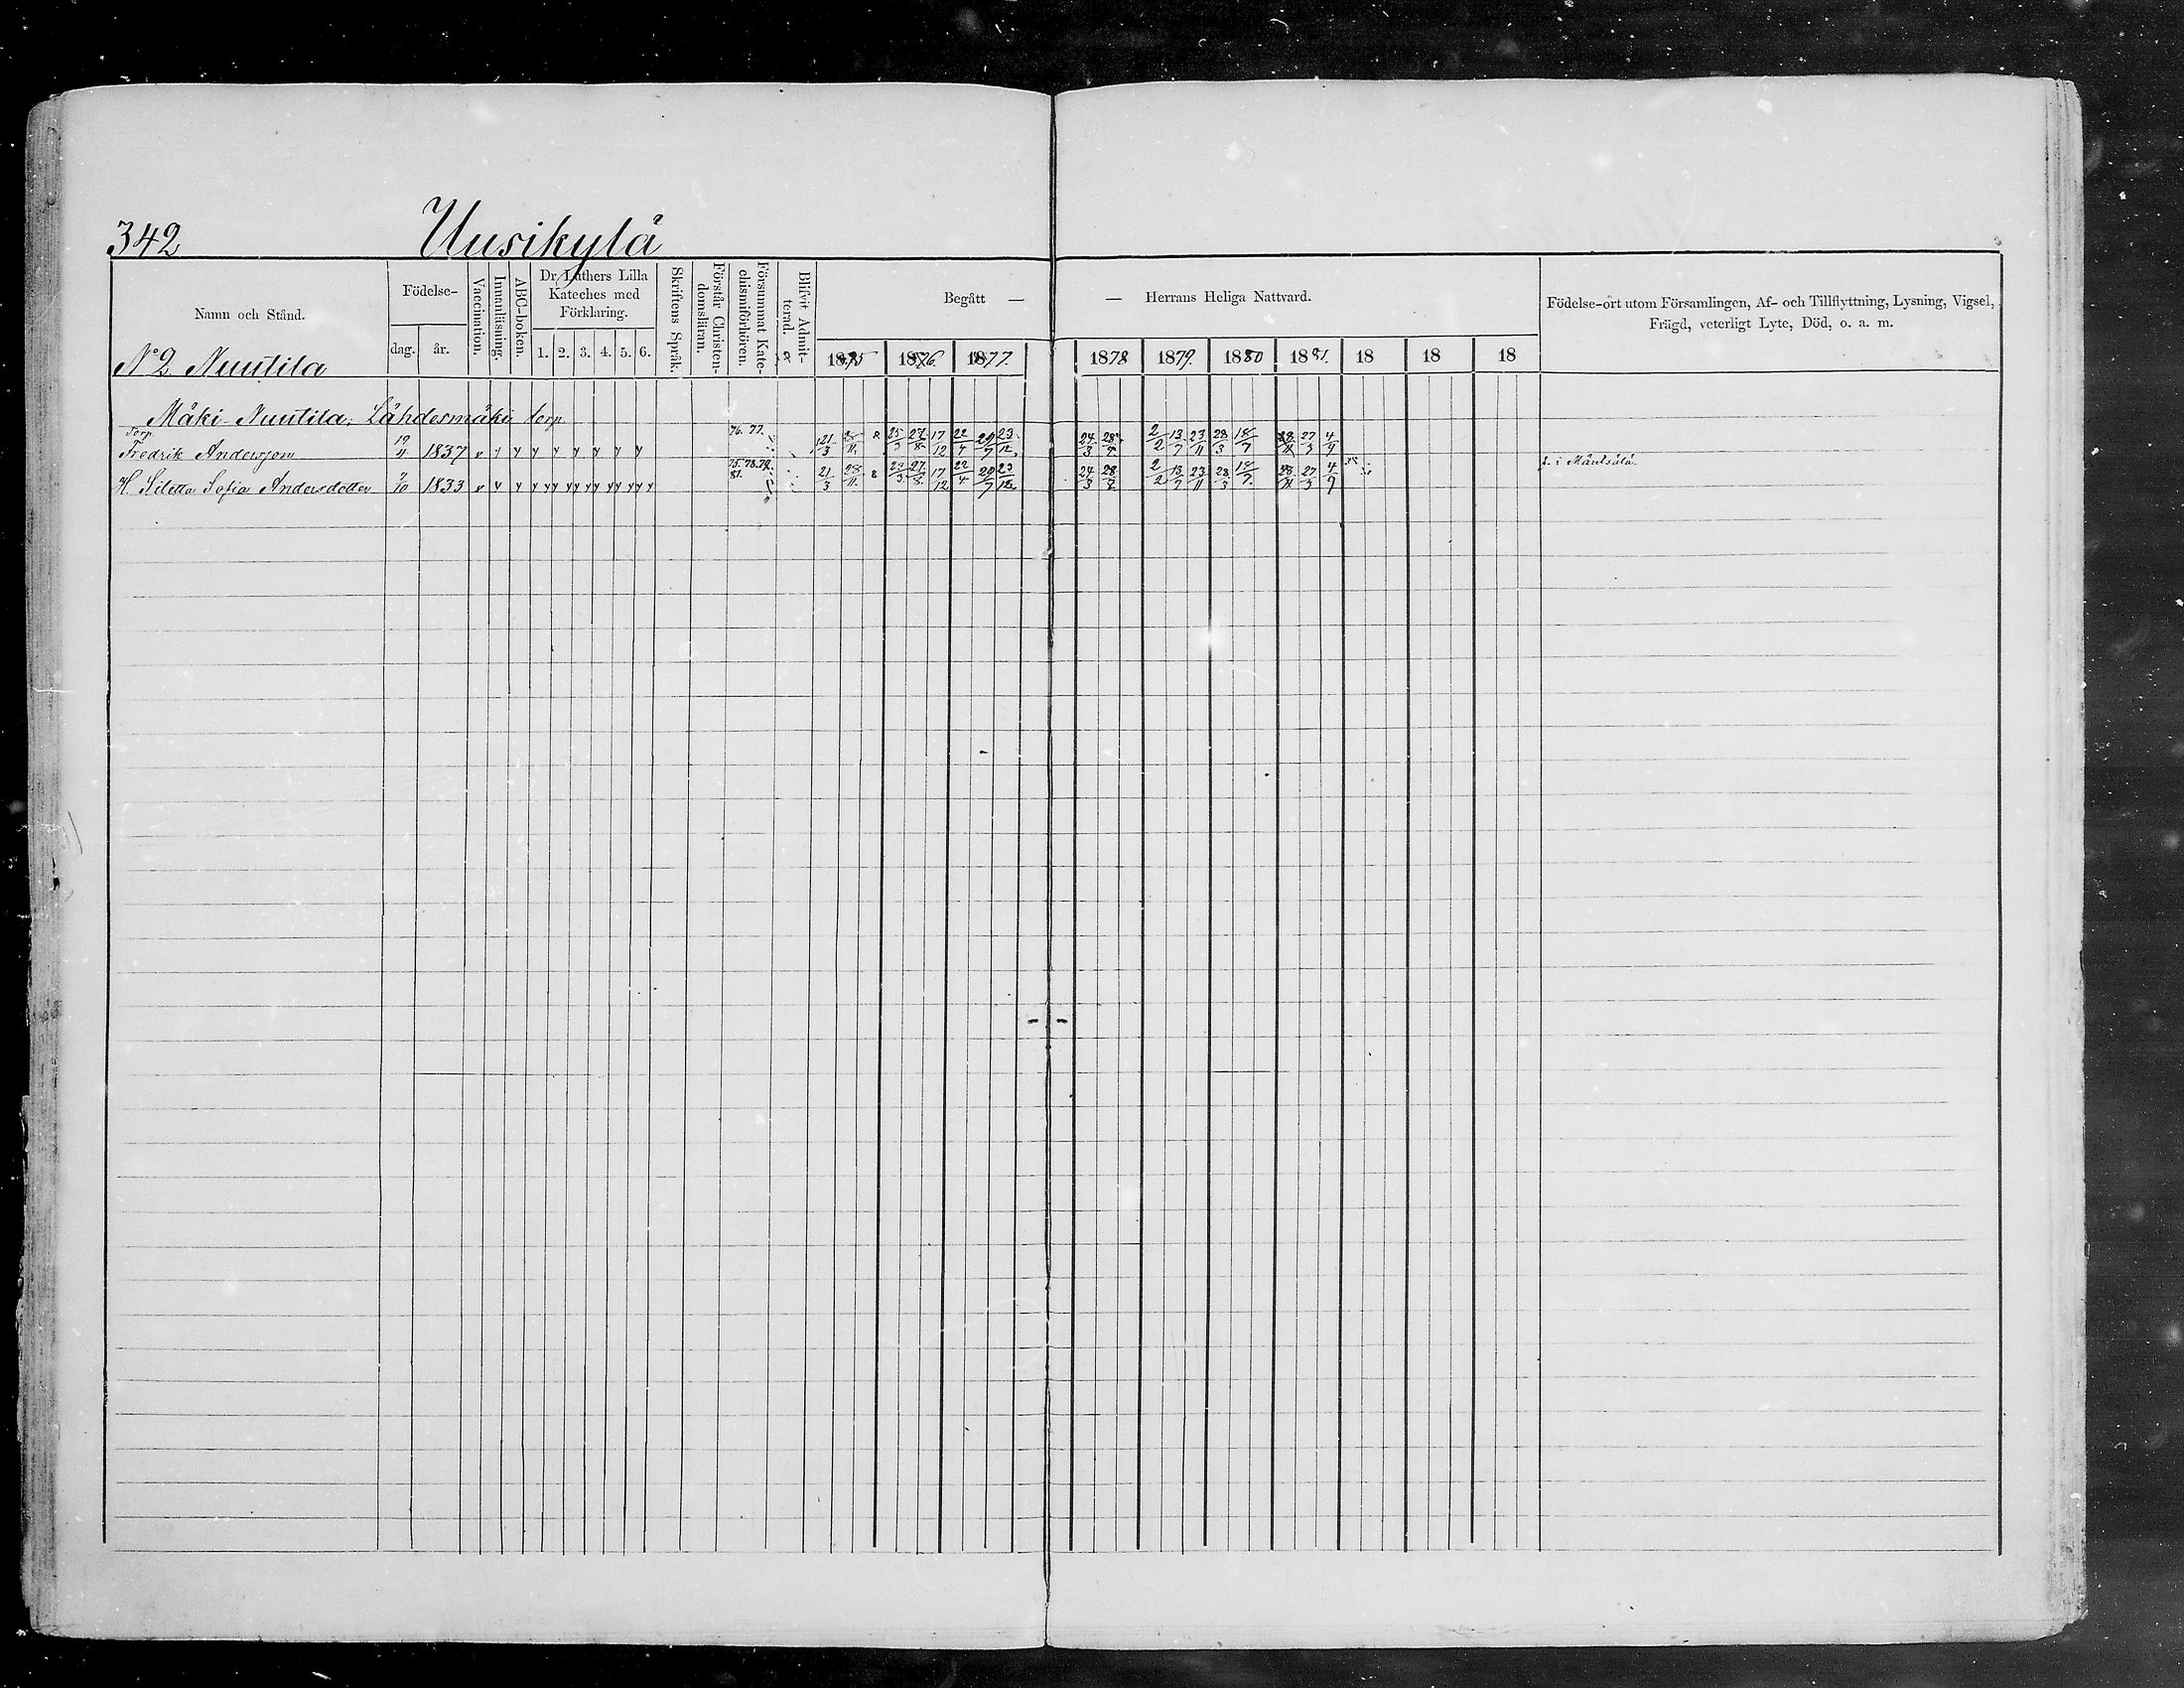 342 Uusikylä
Namn och Stånd.
Födelse-
dag. år.
Vaccination.
Innanläsning.
ABC-boken.
Dr Luthers Lilla
Kateches med
Förklaring.
1. 2. 3. 4. 5. 6.
Skriftens Språk.
Förstår Christen-
domsläran.
Försummat Kate-
chismiförhören.
Blifvit Admit-
terad.
Begått —
1875 1876. 1877.
— Herrans Heliga Nattvard.
1878 1879. 1880 1881. 18 18 18
Födelse-ort utom Församlingen, Af- och Tillflyttning, Lysning, Vigsel,
Frägd, veterligt Lyte, Död, o. a. m.
No 2 Nuutila
Mäki-Nuutila, Lähdesmäki torp
Torp.
Fredrik Andersson 19/4 1837 v y y y y y y y y 76. 77. 21/3 25/3 27/8 17/12 22/4 29/7 23/12 24/3 28/7 2/2 13/7 23/11 28/3 18/7 28/11 27/3 4/9
H. Siletta Sofia Andersdotter 1833 v y y yy yy yy yy yy 75. 78. 79. 81. 21/3 28/11 27/8 17/12 22/4 29/7 23/12 24/3 28/7 2/2 13/7 23/11 28/3 18/7 28/11 27/3 4/9 f. i Mäntsälä.